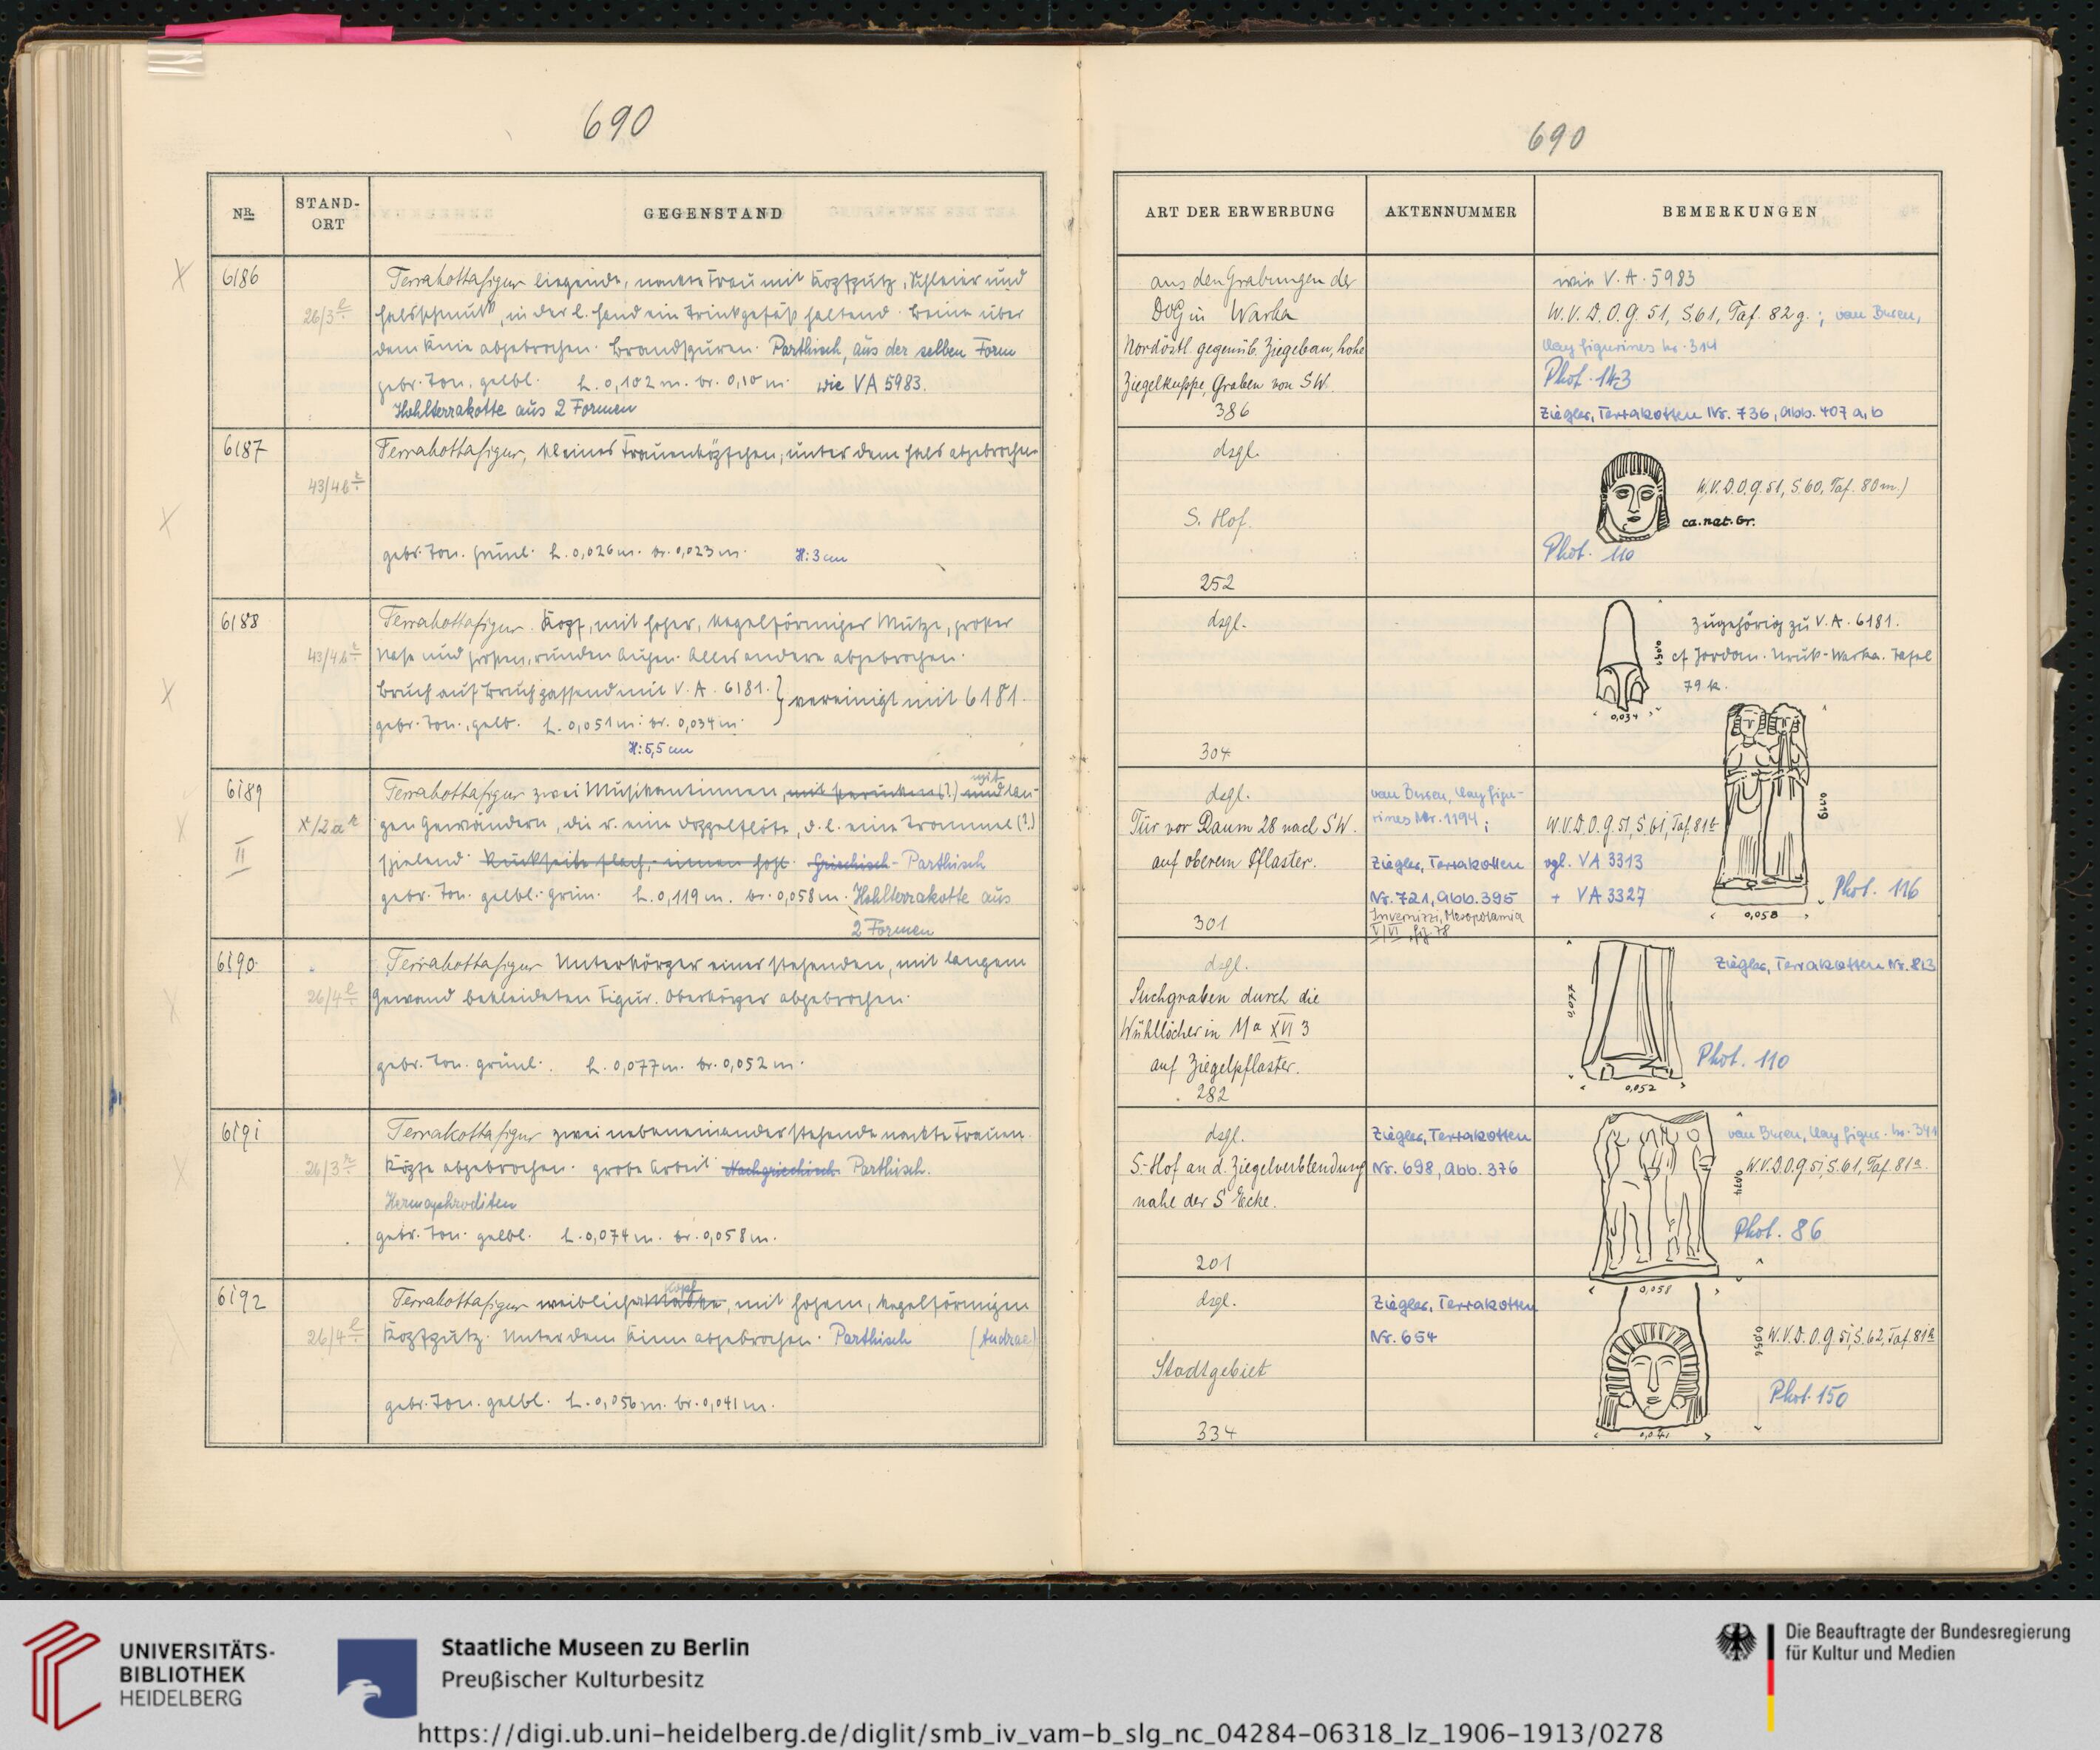 690
NR.
STAND-
ORT
GEGENSTAND
6186
26/3
Terrakottafigur liegende, nackte Frau mit Kopfputz, Schleier und
Halsschmuck, in der l. Hand ein Trinkgefäß haltend. Beine über
dem Knie abgebrochen. Brandspuren. Parthisch, aus der selben Form
gebr. Ton, gelbl. L. 0,102 m. br. 0,10 m. wie VA 5983.
Hohlterrakotte aus 2 Formen
6187
43/4b
Terrakottafigur, kleines Frauenköpfchen, unter dem Hals abgebrochen
gebr. Ton. grünl. L. 0,026 m. br. 0,023 m. H: 3 cm
6188
43/4b
Terrakottafigur. Kopf, mit hoher, kegelförmiger Mütze, großer
Nase und großen, runden Augen. Alles andere abgebrochen.
Bruch auf Bruch passend mit V. A. 6181. } vereinigt mit 6181.
gebr. Ton, gelb. L. 0,051 m. br. 0,034 m.
H: 5,5 cm
6189
II
x/2a
Terrakottafigur zwei Musikantinnen, mit Perücken (?) und mit lan-
gen Gewändern, die r. eine Doppelflöte, d. l. eine Trommel (?)
spielend. Rückseite flach, innen hohl. Griechisch - Parthisch
gebr. Ton. gelbl. grün. L. 0,119 m. br. 0,058 m. Hohlterrakotte aus
2 Formen
6190
26/4
Terrakottafigur Unterkörper einer stehenden, mit langem
Gewand bekleideten Figur. Oberkörper abgebrochen.
gebr. Ton. grünl. L. 0,077 m. br. 0,052 m.
6191
26/3
Terrakottafigur zwei nebeneinander stehende nackte Frauen.
Köpfe abgebrochen. grobe Arbeit Nachgriechisch Parthisch.
Hermaphroditen
gebr. Ton. gelbl. L. 0,074 m. br. 0,058 m.
6192
26/4
Terrakottafigur weiblicher Maske Kopf, mit hohem, kegelförmigen
Kopfputz. Unter dem Kinn abgebrochen. Parthisch (Andrae)
gebr. Ton. gelbl. L. 0,056 m. br. 0,041 m.
690
ART DER ERWERBUNG
AKTENNUMMER
BEMERKUNGEN
aus den Grabungen der
DOG in Warka
Nordöstl. gegenüb. Ziegelbau, hohe
Ziegelkuppe, Graben von SW.
386
wie V. A. 5983
W. V. D. O. G. 51, S. 61, Taf. 82 g. ; van Buren,
Clay figurines Nr. 314
Phot. 143
Ziegler, Terrakotten Nr. 736, Abb. 407 a, b
dsgl.
S. Hof.
252
W. V. D. O. G. 51, S. 60, Taf. 80 m.)
ca. nat. Gr.
Phot. 110
dsgl.
304
zugehörig zu V. A. 6181.
cf Jordan. Uruk-Warka. Tafel
79 k.
0,034
dsgl.
Tür vor Raum 28 nach SW.
auf oberem Pflaster.
301
van Buren, Clay figu-
rines Nr. 1194 ;
Ziegler, Terrakotten
Nr. 721, Abb. 395
Invernizzi, Mesopotamia
V/VI, fig. 78
W. V. D. O. G. 51, S. 61, Taf. 81
vgl. VA 3313
+ VA 3327
0,119
0,058
Phot. 116
dsgl.
Suchgraben durch die
Wühllöcher in Ma XVI 3
auf Ziegelpflaster.
282
Ziegler, Terrakotten Nr. 813
0,077
0,052
Phot. 110
dsgl.
S.-Hof an d. Ziegelverblendung
nahe der S Ecke.
201
Ziegler, Terrakotten
Nr. 698, Abb. 376
van Buren, Clay figur. Nr. 341
W. V. D. O. G. 51, S. 61, Taf. 81
0,074
Phot. 86
0,058
dsgl.
Stadtgebiet
334
Ziegler, Terrakotten
Nr. 654
W. V. D. O. G. 51, S. 62, Taf. 81
0,056
Phot. 150
0,041
UNIVERSITÄTS-
BIBLIOTHEK
HEIDELBERG
Staatliche Museen zu Berlin
Preußischer Kulturbesitz
Die Beauftragte der Bundesregierung
für Kultur und Medien
https://digi.ub.uni-heidelberg.de/diglit/smb_iv_vam-b_slg_nc_04284-06318_lz_1906-1913/0278